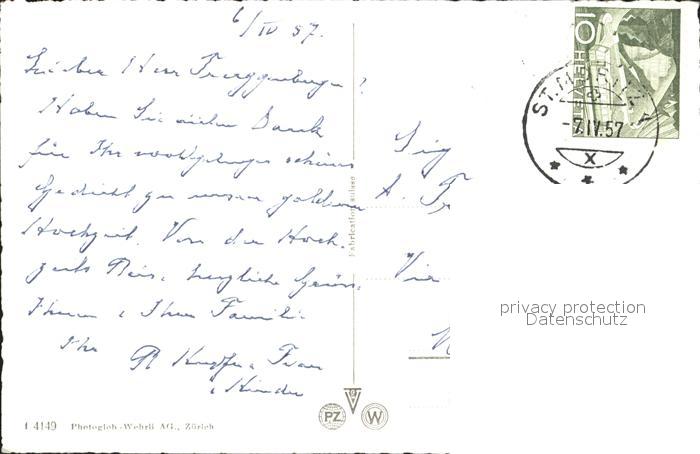 6/IV 57.
Lieber Herr
Haben Sie vielen Dank
für Ihr wohlgelungenes schönes
Gedicht zu unserer goldenen
Hochzeit. Von der Hoch-
zeits Reise herzliche Grüsse
Ihnen & Ihrer Familie
Ihr
& Frau
& Kinder
Fabrication suisse
Sig
A. Fr
Via
HELVETIA
10
ST. MORITZ
-7.IV.57
X
privacy protection
Datenschutz
PZ
W
1 4149 Photoglob-Wehrli AG., Zürich